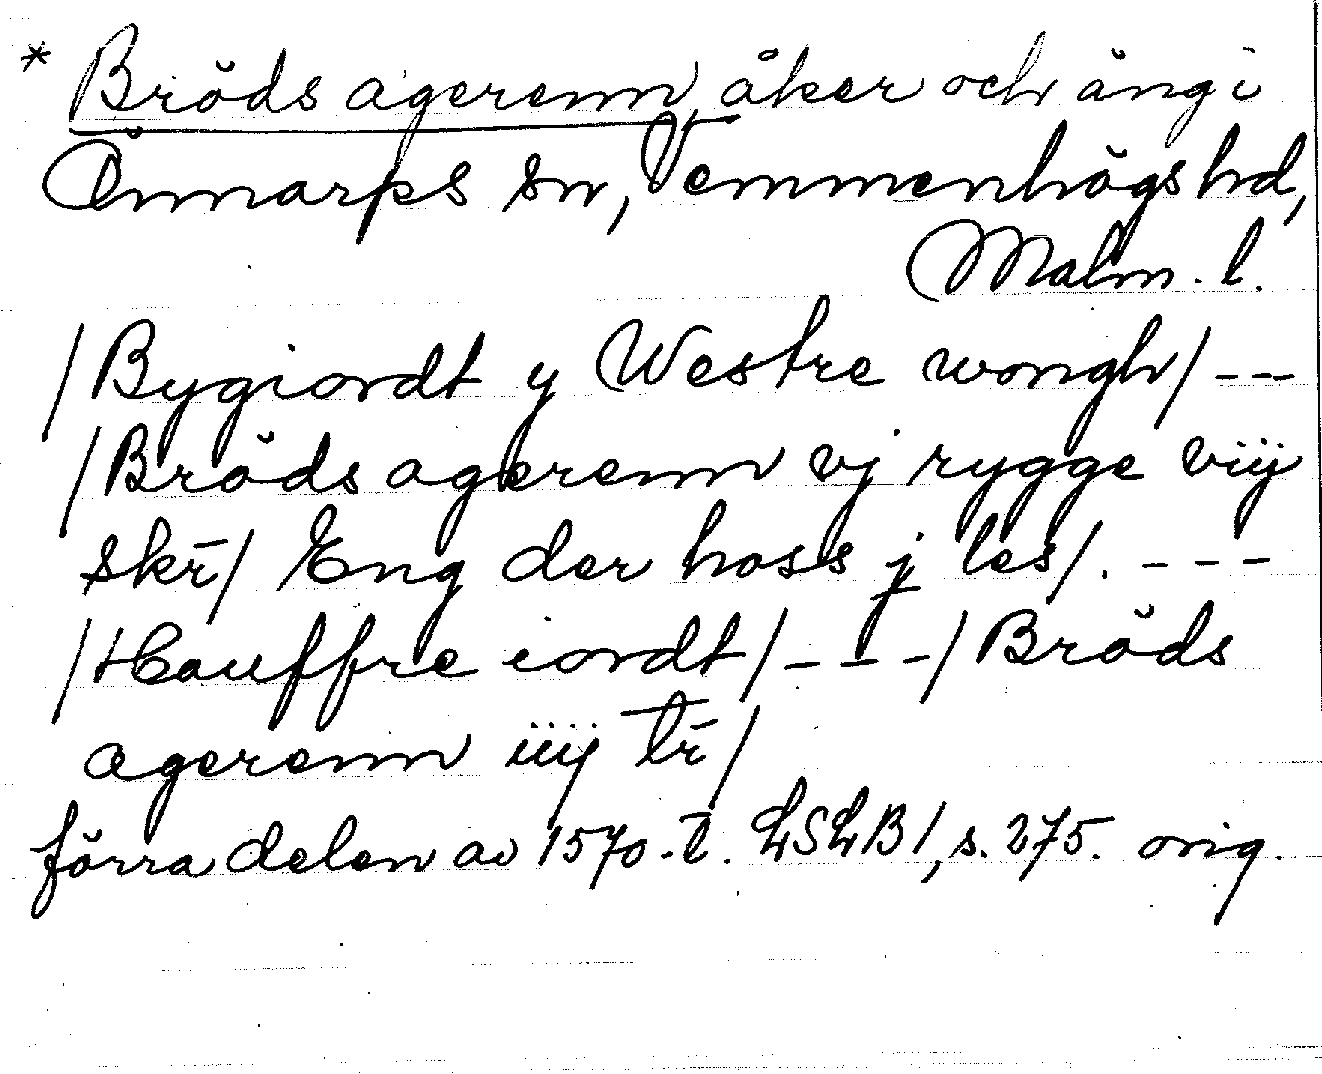 * Bröds agerenn, åker och äng i
Önnarps sn, Vemmenhögs hd,
Malm. l.
/Bygiordt y Westre wongh/ ---
/Bröds agerenn vj rygge viij
skr̄/ Eng der hoss j les/. ---
/Hauffre iordt/ --- / Bröds
agerenn iiij tr̄/
förra delen av 1570-t. LSLB 1, s. 275. orig.